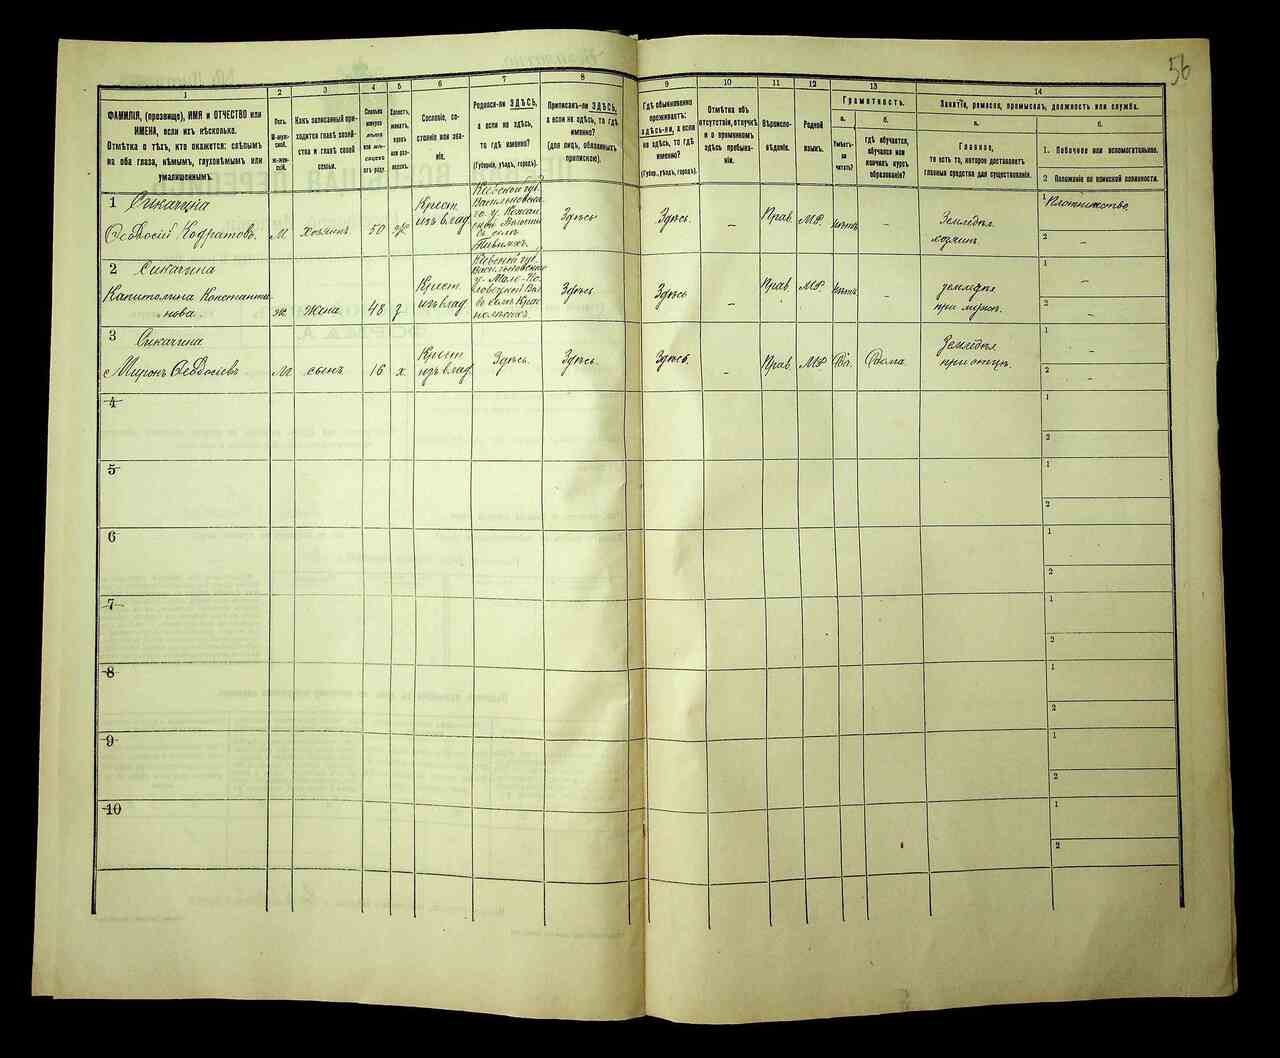 56
1
2
3
4
5
6
7
8
9
10
11
12
13
14
ФАМИЛІЯ, (прозвище), ИМЯ и ОТЧЕСТВО или
ИМЕНА, если ихъ нѣсколько.
Отмѣтка о тѣхъ, кто окажется: слѣпымъ
на оба глаза, нѣмымъ, глухонѣмымъ или
умалишеннымъ.
Полъ.
М-муж-
ской.
ж-жен-
скій.
Какъ записанный при-
ходится главѣ хозяй-
ства и главѣ своей
семьи.
Сколько
минуло
лѣтъ
или мѣ-
сяцевъ
отъ роду.
Холостъ,
женатъ,
вдовъ
или раз-
веденъ.
Сословіе, со-
стояніе или зва-
ніе.
Родился-ли ЗДѢСЬ,
а если не здѣсь,
то гдѣ именно?
(Губернія, уѣздъ, городъ).
Приписанъ-ли ЗДѢСЬ,
а если не здѣсь, то гдѣ
именно?
(для лицъ, обязанныхъ
припискою).
Гдѣ обыкновенно
проживаетъ:
здѣсь-ли, а если
не здѣсь, то гдѣ
именно?
(Губер., уѣздъ, городъ).
Отмѣтка объ
отсутствіи, отлучкѣ
и о временномъ
здѣсь пребыва-
ніи.
Вѣроиспо-
вѣданіе.
Родной
языкъ.
Грамотность.
а.
Умѣетъ-ли
читать?
б.
гдѣ обучается,
обучался или
кончилъ курсъ
образованія?
Занятіе, ремесло, промыселъ, должность или служба.
а.
Главное,
то есть то, которое доставляетъ
главныя средства для существованія.
б.
1. Побочное или вспомогательное.
2 Положеніе по воинской повинности.
1 Сикачина
Ѳеодосій Кодратовъ.
м
хозяинъ
50
Крест
изъ влад
Кіевской губ.
Здѣсь
Здѣсь.
–
Прав.
МР.
нѣтъ
–
Земледѣл
хозяинъ
1 Плотничество
2 –
2 Сикачина
Капиталина Константи
нова.
ж
Жена
48
з
Крест
изъ влад
Кіевской губ.
Здѣсь.
Здѣсь
–
Прав.
МР.
нѣтъ
–
земледѣл
при мужѣ.
1 –
2 –
3 Сикачина
Миронъ Ѳеодосіевъ
м
сынъ
16
х.
Крест
изъ влад
Здѣсь.
Здѣсь.
Здѣсь.
–
Прав.
МР
Дома.
Земледѣл
при отцѣ.
1 –
2 –
4
1
2
5
1
2
6
1
2
7
1
2
8
1
2
9
1
2
10
1
2